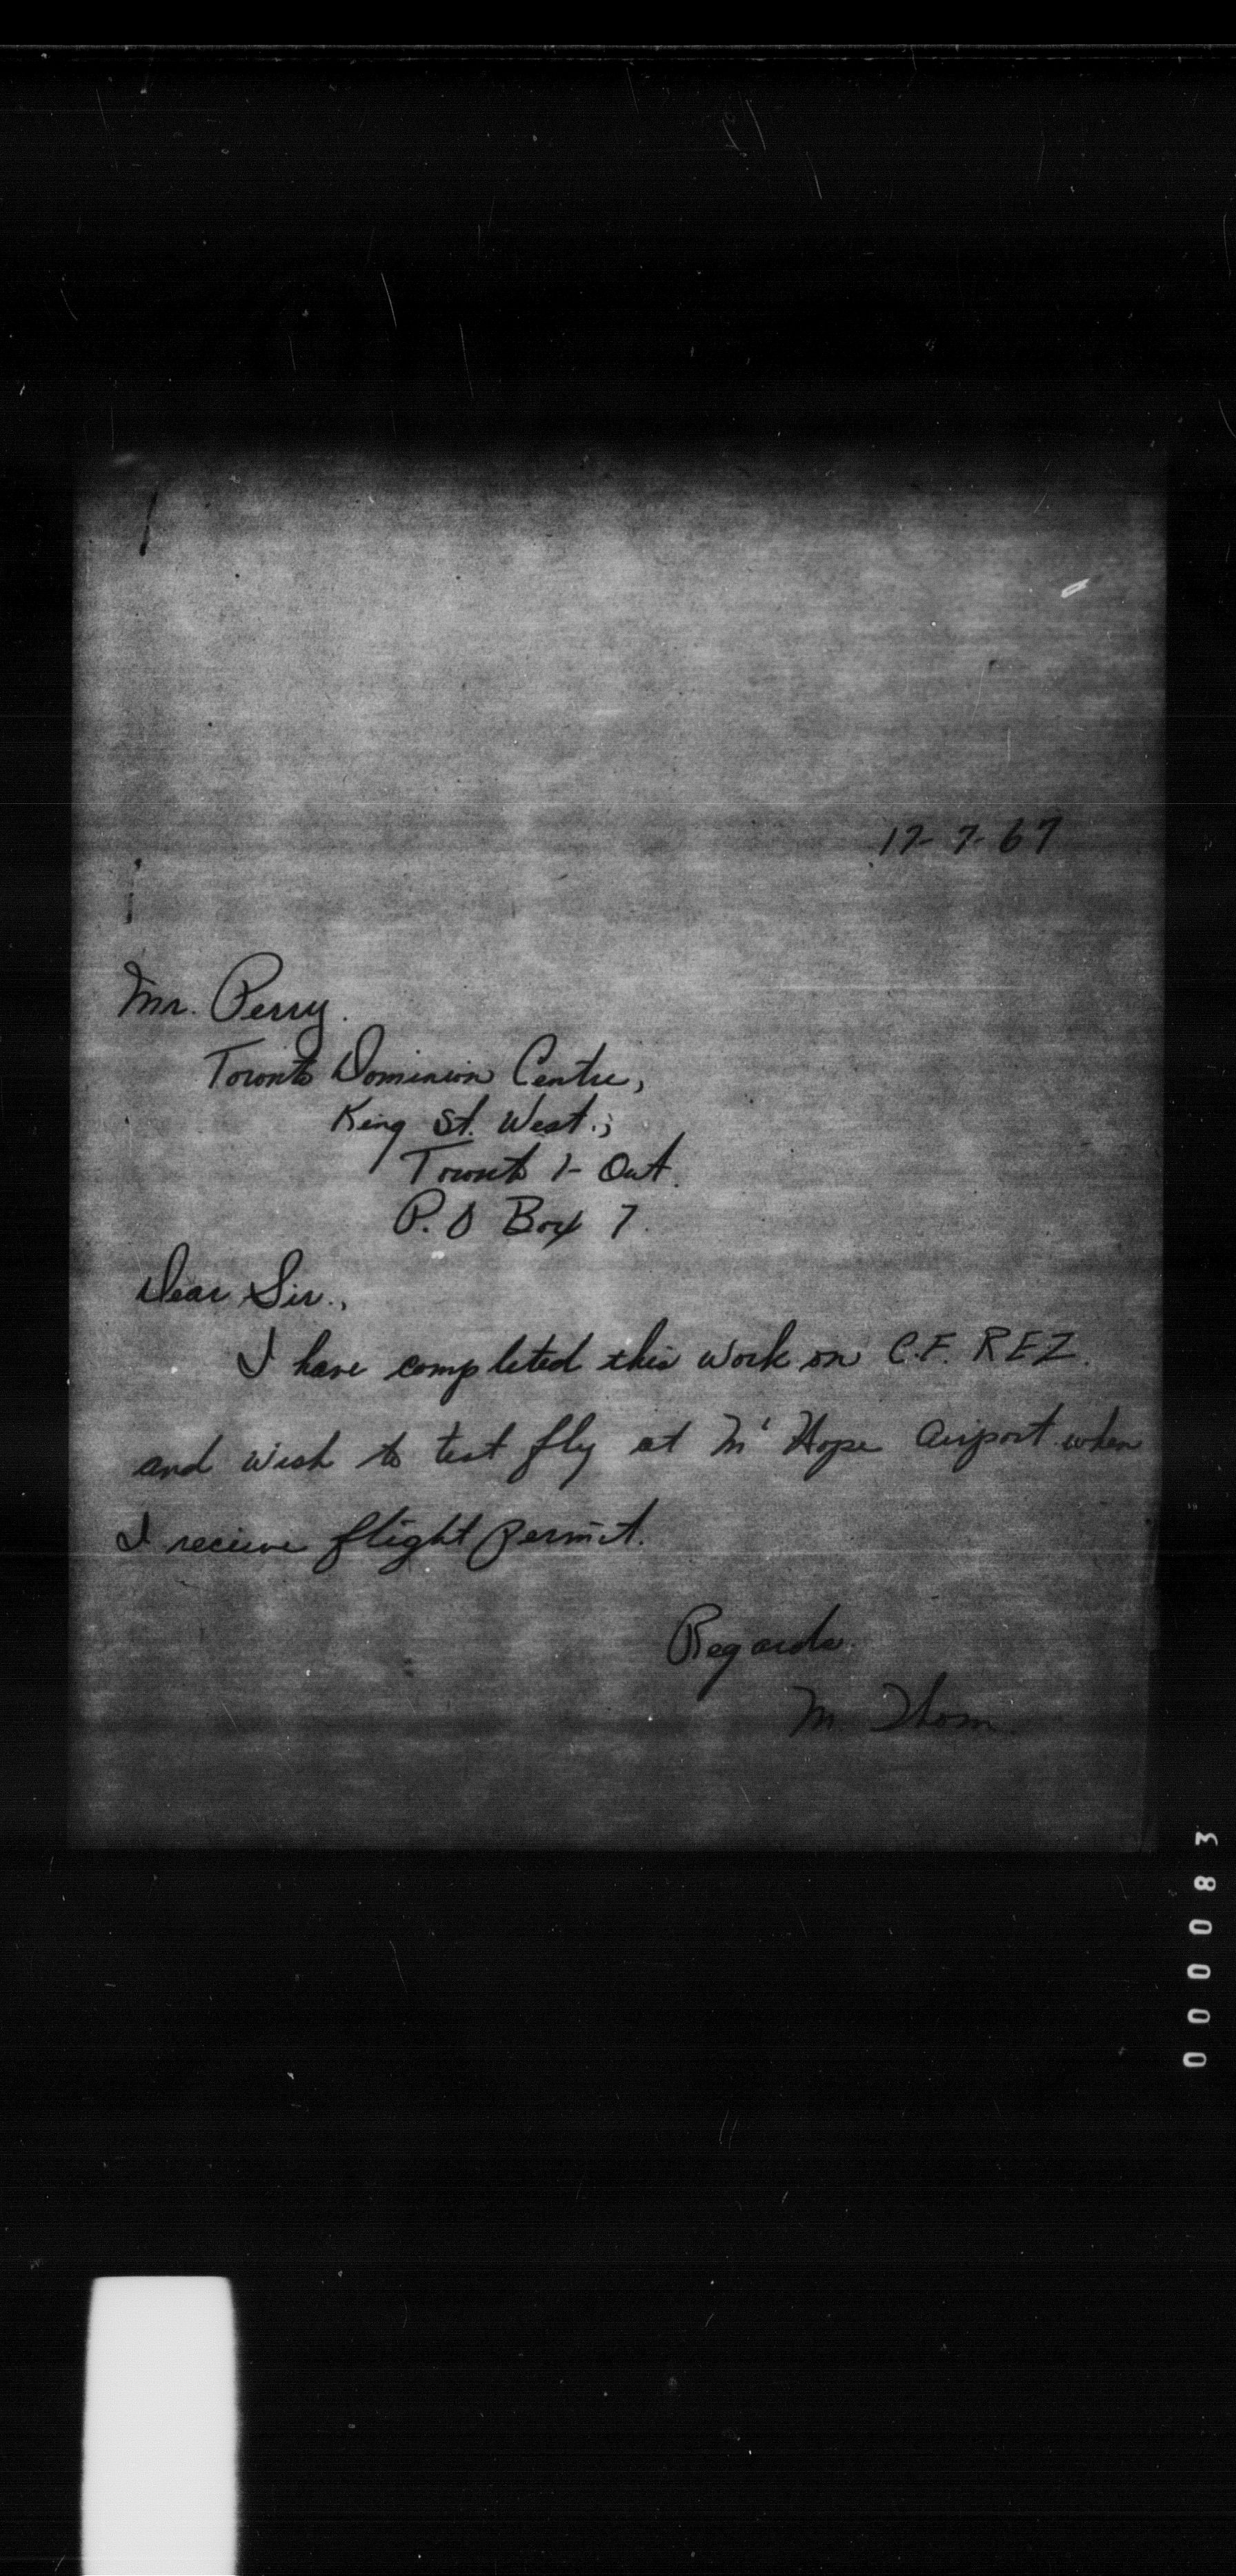 17-7-67
Mr. Perry.
Toronto Dominion Centre,
King St. West.,
Toronto 1- Ont.
P.O Box 7.
Dear Sir.,
I have completed this work on C.F. REZ.
and wish to test fly at Mt Hope Airport when
I recieve flight permit.
Regards.
M. Thom.
000083